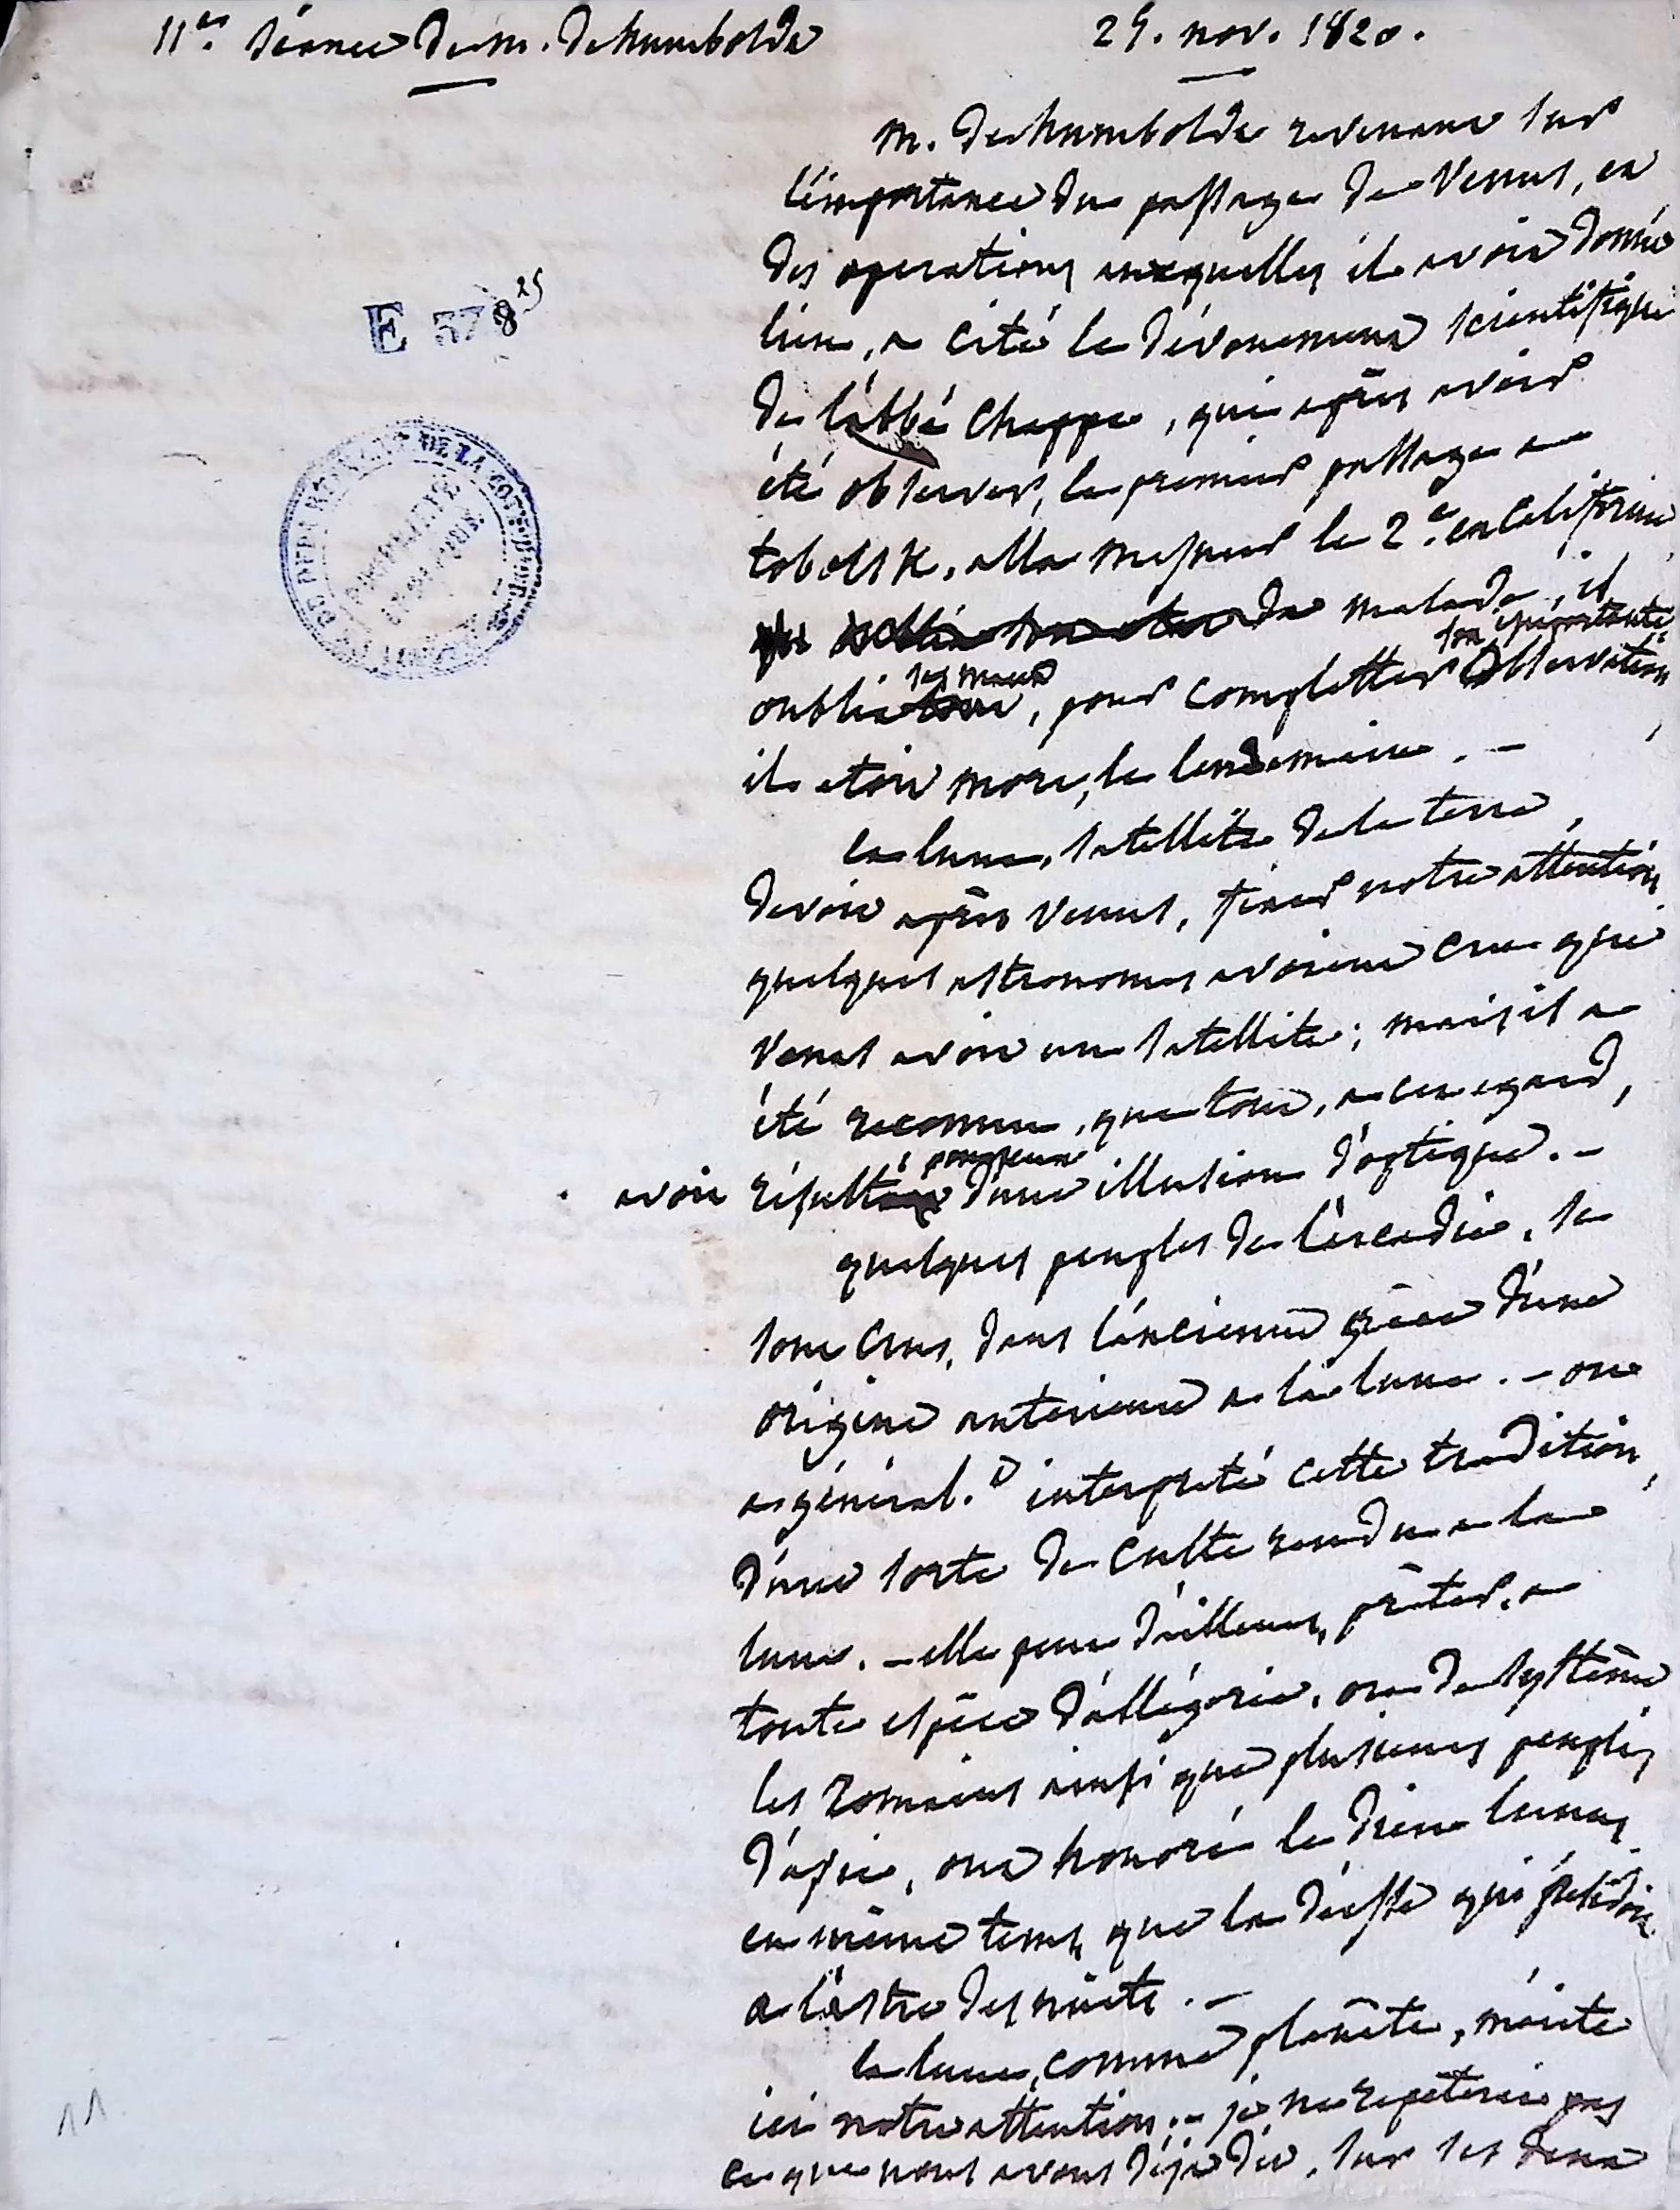 11e. séance de m. de humboldt
29. nov. 1820.
m. de humboldt revenant sur
l'importance du passage de Venus, et
des operations auxquelles il avoit donné
lieu, a cité le dévouement scientifique
de l'abbé Chappe, qui après avoir
été observer, le premier passage a
tobolsk, alla mesurer le 2e. en Californie
de malade, il
oublia ses maux, pour completter son importante observation
il etoit mort, le lendemain. -
la lune, satellite de la terre,
devoit après Venus, fixer notre attention.
quelques astronomes avoient cru que
Venus avoit un satellite; mais il a
été reconnu, que tout, a cet egard,
avoit résulté pour eux d'une illusion d'optique. -
quelques peuples de l'arcadie, se
sont crus, dans l'ancienne grèce d'une
origine anterieure a la lune. - on
a général.t interpreté cette tradition,
d'une sorte de culte rendu a la
lune. - elle peut d'ailleurs, prêter, a
toute espèce d'allégorie, ou de systême
les romains ainsi que plusieurs peuples
d'asie, ont honoré le dieu lunus,
en même tems, que la déesse qui présidoit
a l'astre des nuits. -
la lune, comme planète, mérite
ici notre attention. - je ne repeterai pas
ce que nous avons déja dit, sur les deux
E 378 25
DE LA COTE D'OR
11